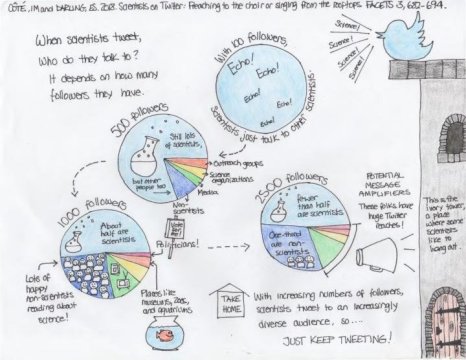 CÔTÉ, IM and DARLING, ES. 2018. Scientists on Twitter: Preaching to the choir or singing from the rooftops. FACETS :3, 682-694.
When scientists tweet,
Who do they talk to?
It depends on how many
followers they have.
With 100 followers,
Echo!
Echo!
Echo!
Echo!
Echo!
Scientists just talk to other scientists.
Science!
Science!
Science!
Science!
500 followers
Still lots
of scientists,
but other
people too
Outreach groups
Science
organizations
Media
Non-
scientists
1000 followers
About
half are
scientists
Politicians!
Lots of
happy
non-scientists
reading about
science!
Places like
museums, zoos,
and aquariums
2500 followers
Fewer
than half
are scientists
One-third
are non-
scientists
POTENTIAL
MESSAGE
AMPLIFIERS
These folks have
huge Twitter
reaches!
This is the
ivory tower,
a place
where some
scientists
like to
hang out.
TAKE
HOME
With increasing numbers of followers,
scientists tweet to an increasingly
diverse audience, so....
JUST KEEP TWEETING!